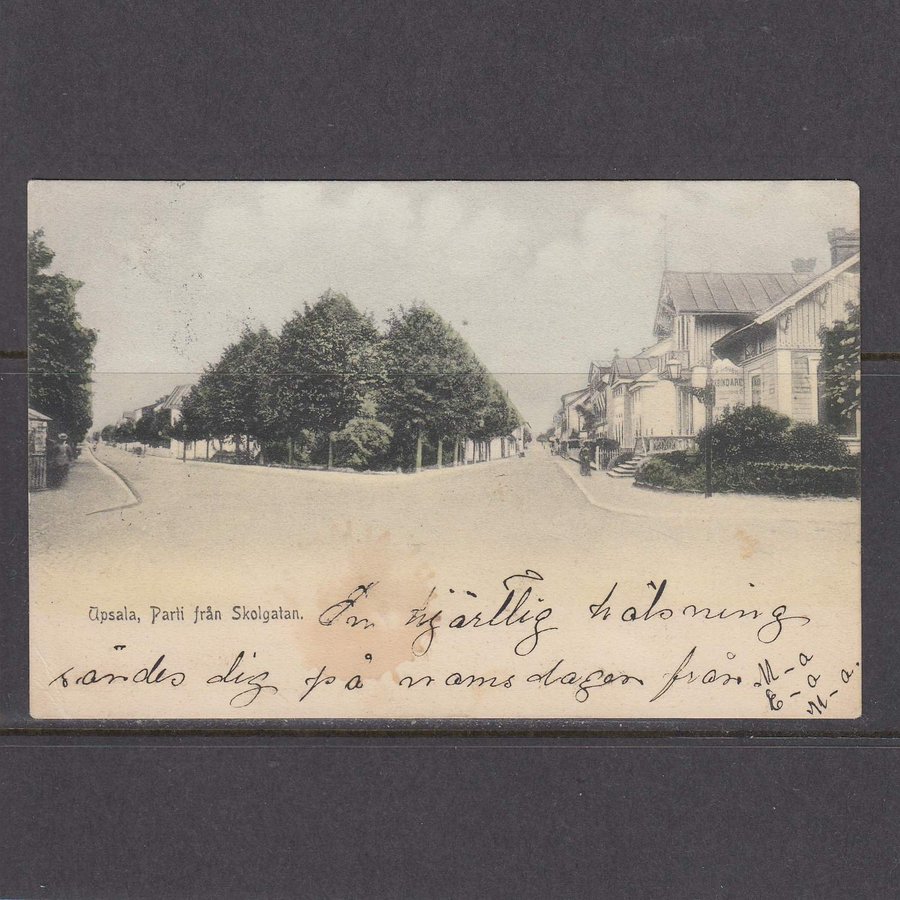 Upsala, Parti från Skolgatan.
En hjärtlig hälsning
sändes dig på namsdagen från
M-a
E-a
M-a.